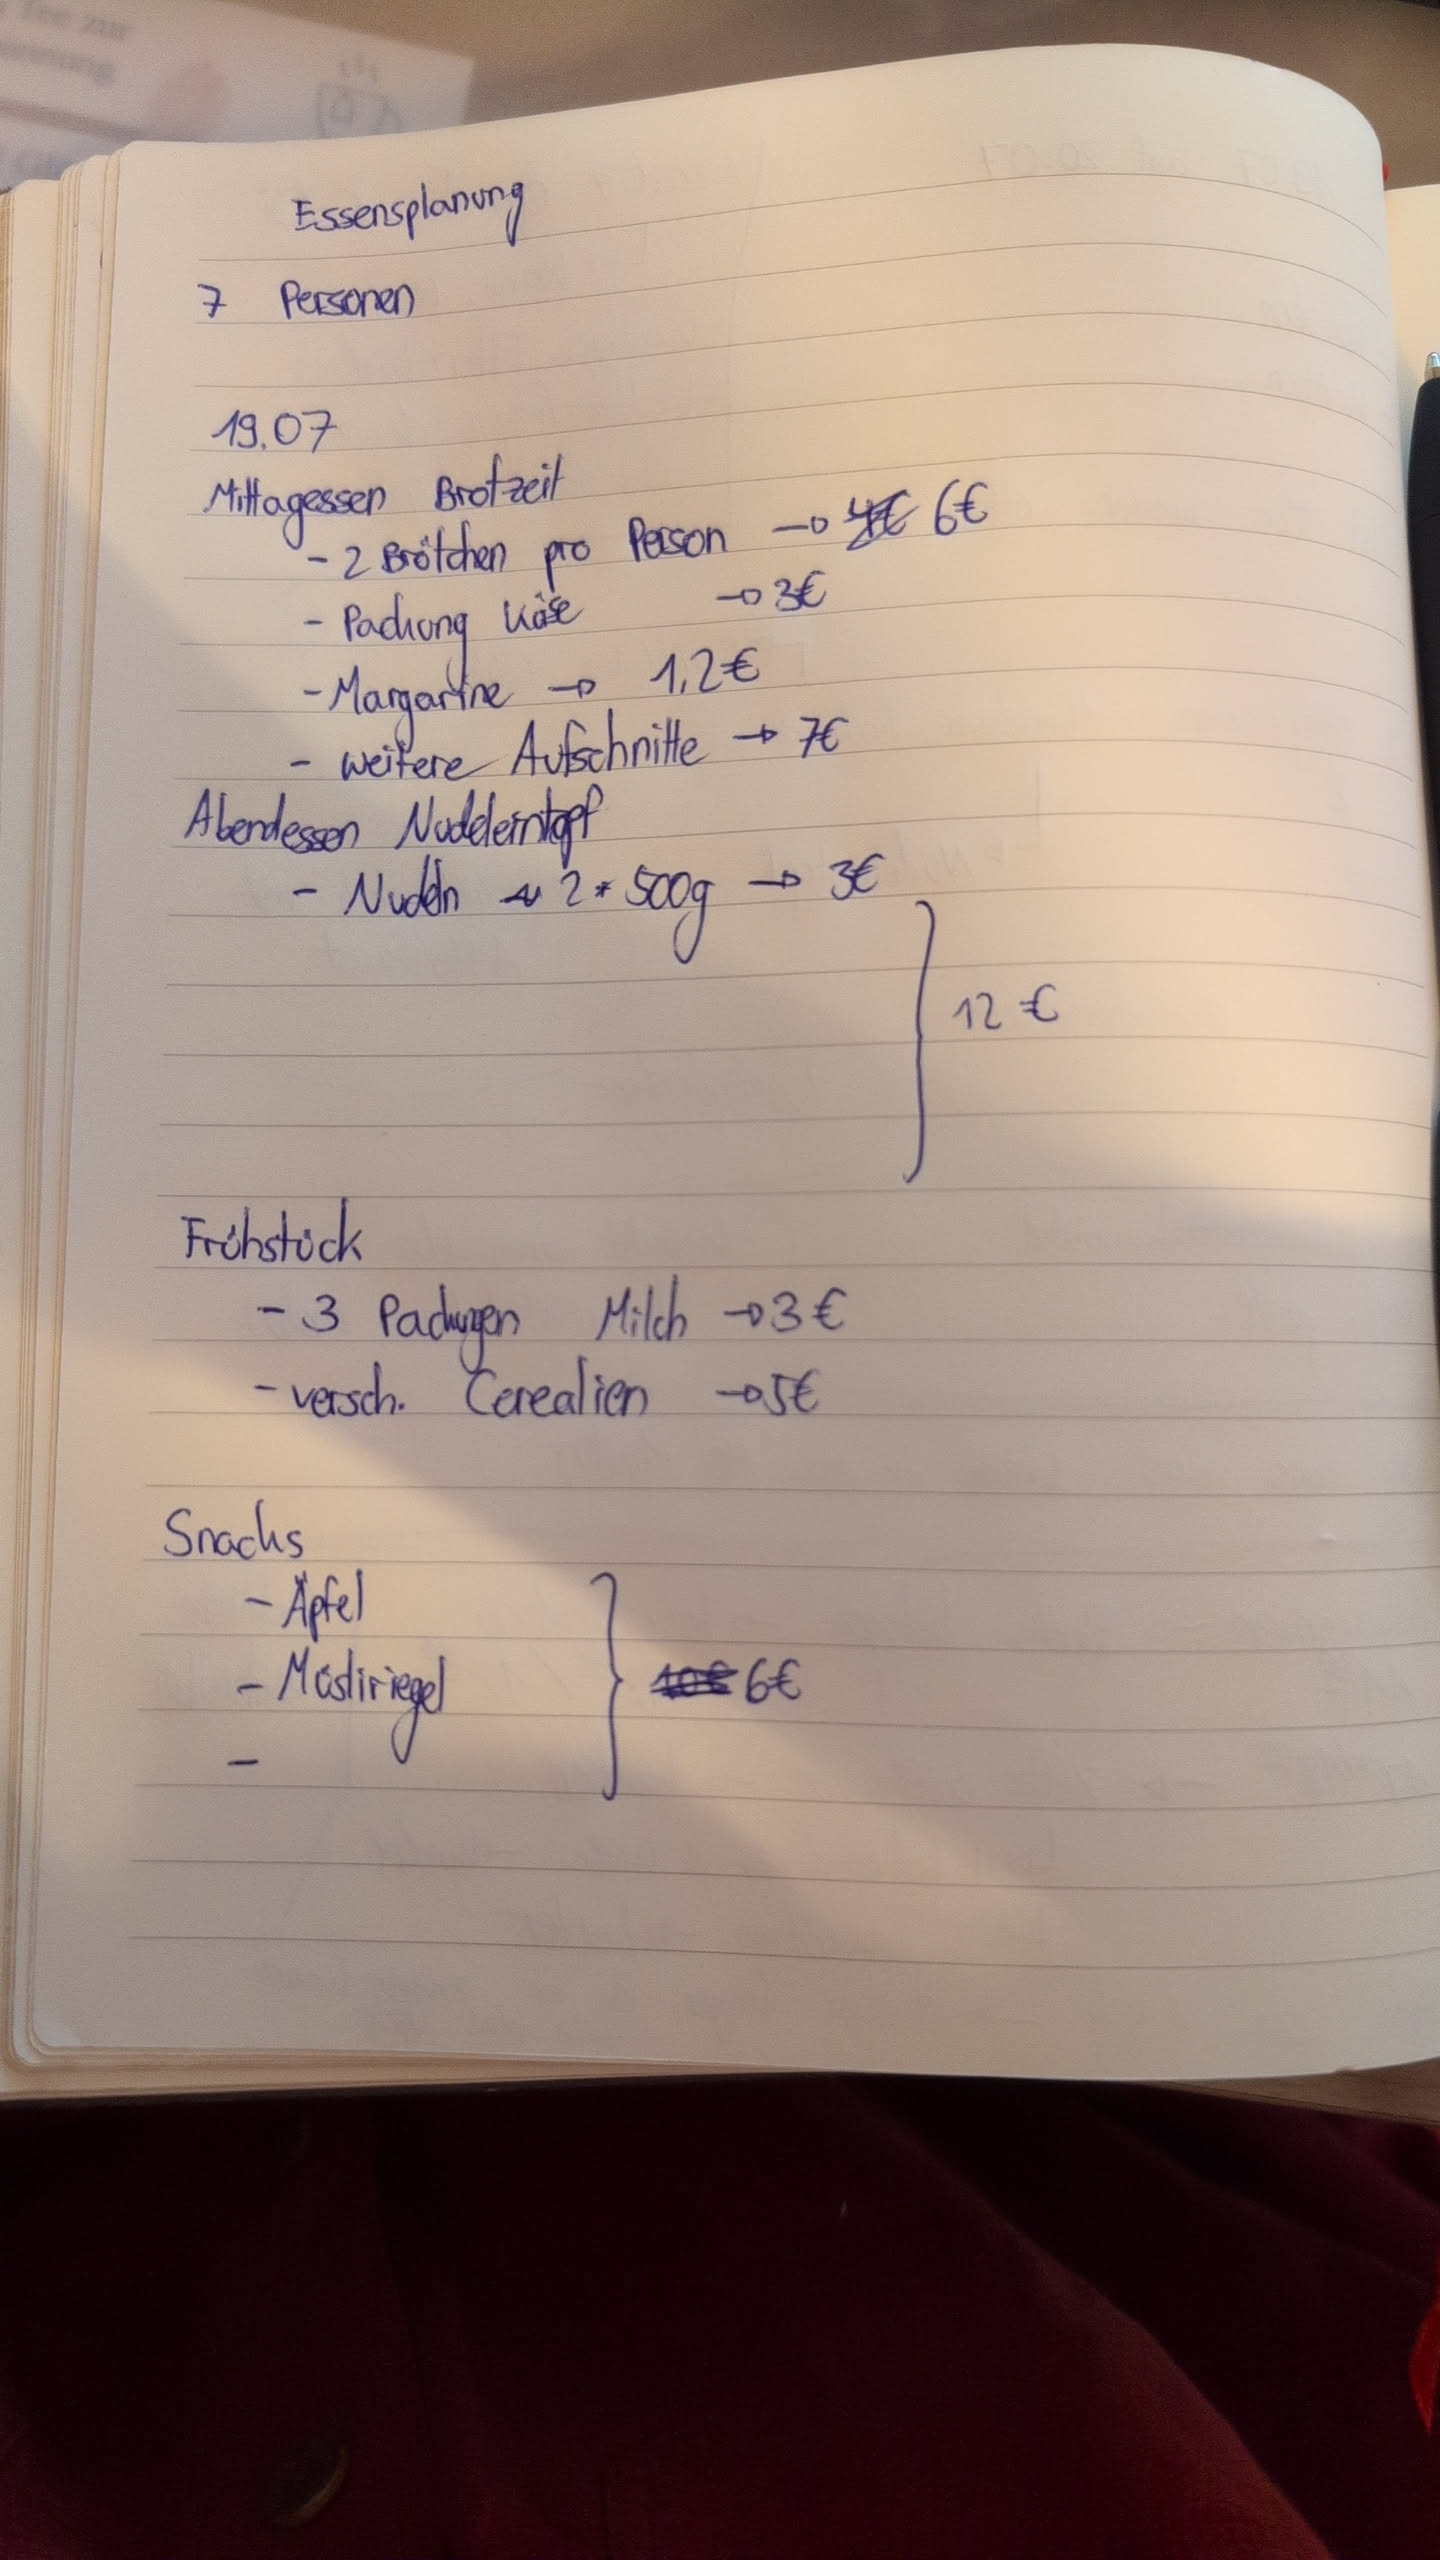 Tee zur
Essensplanung
7 Personen
19.07
Mittagessen Brotzeit
- 2 Brötchen pro Person → 4€ 6€
- Packung Käse → 3€
- Margarine → 1,2€
- weitere Aufschnitte → 7€
Abendessen Nudeleintopf
- Nudeln ~ 2 * 500g → 3€
} 12 €
Frühstück
- 3 Packungen Milch → 3 €
- versch. Cerealien → 5€
Snacks
- Äpfel
- Müsliriegel } 10€ 6€
-